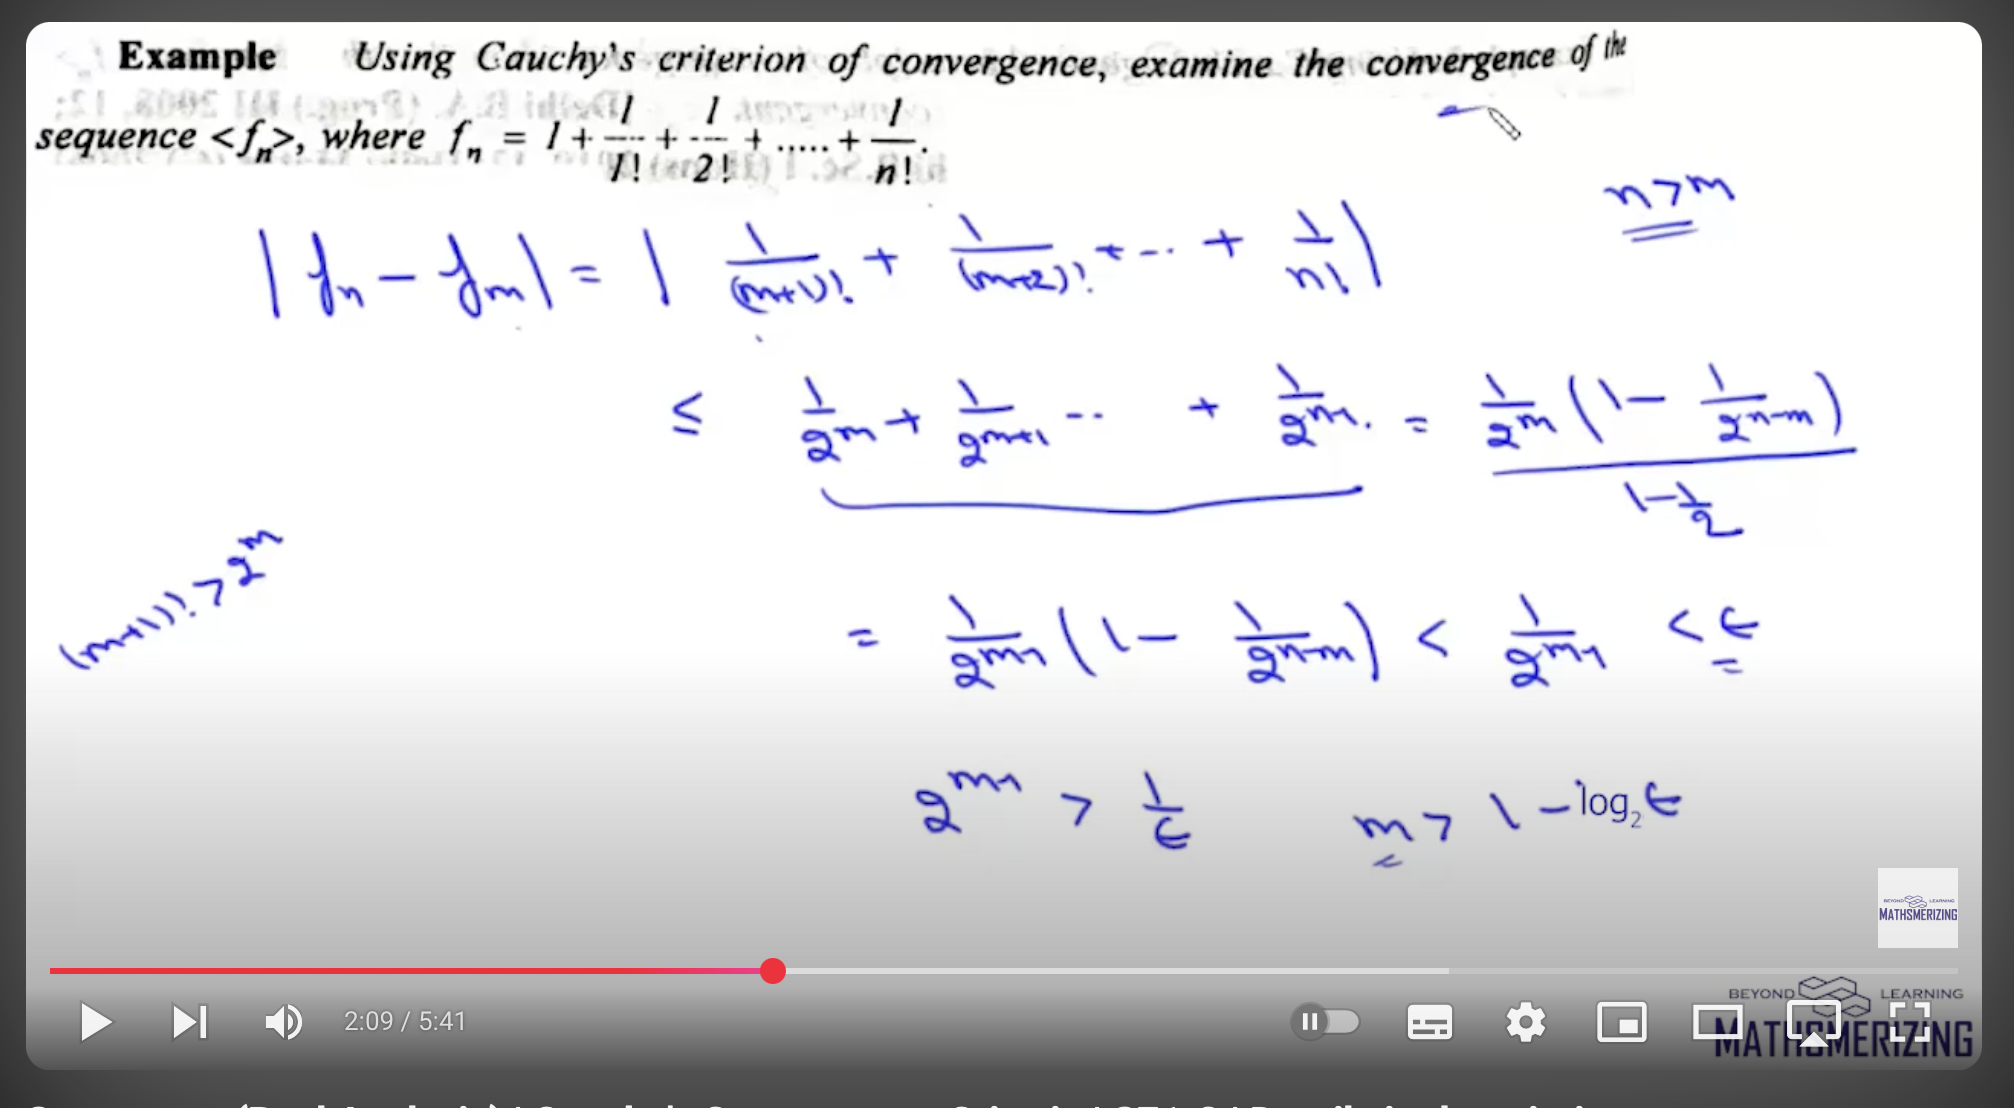 Example Using Cauchy's criterion of convergence, examine the convergence of the
sequence <f_n>, where f_n = 1 + 1/1! + 1/2! + ..... + 1/n!.
n > m
|f_n - f_m| = | 1/(m+1)! + 1/(m+2)! + -- . + 1/n! |
≤ 1/2^m + 1/2^(m+1) -- + 1/2^(n-1) . = (1/2^m (1 - 1/2^(n-m))) / (1 - 1/2)
(m+1)! > 2^m
= 1/2^(m-1) (1 - 1/2^(n-m)) < 1/2^(m-1) < ε
2^(m-1) > 1/ε m > 1 - log_2 ε
BEYOND LEARNING
MATHSMERIZING
2:09 / 5:41
BEYOND LEARNING
MATHSMERIZING